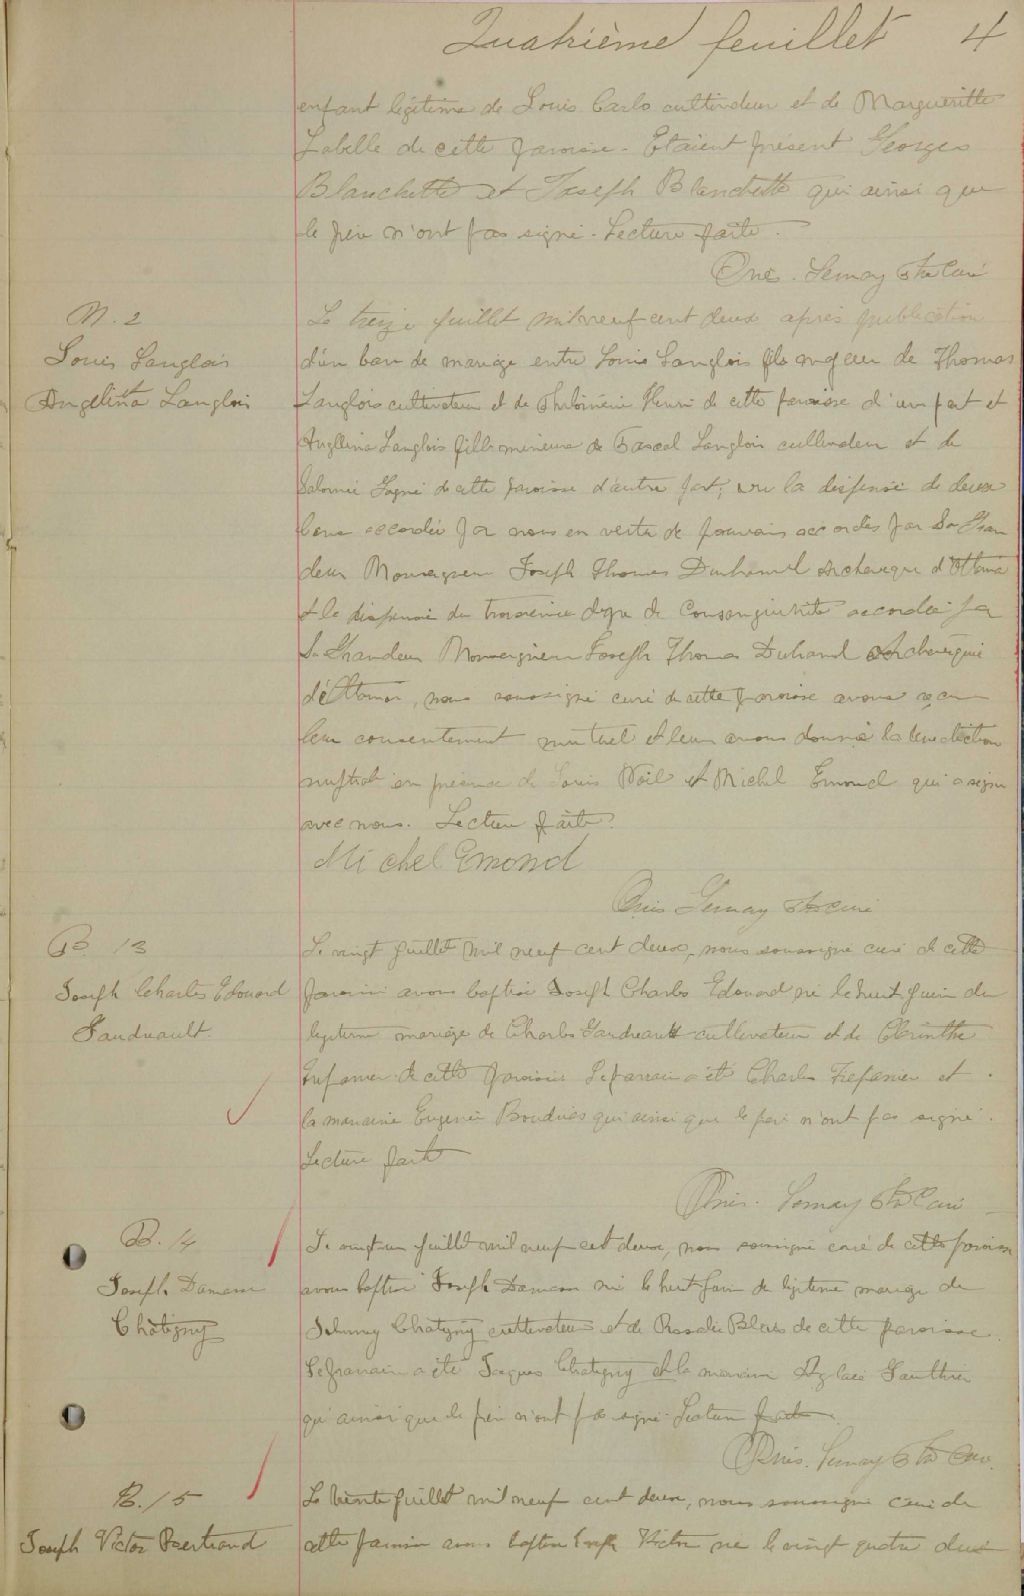 Quatrième feuillet 4
enfant légitime de Louis Carlo cultivateur et de Margueritte
Labelle de cette paroisse. Etaient présent Georges
Blanchette et Joseph Blanchette qui ainsi que
le père n'ont pas signé. Lecture faite.
Lemay Ptre Curé
M. 2
Louis Langlois
Angelina Langlois
Le treize juillet mil neuf cent deux après publication
d'un ban de mariage entre Louis Langlois fils majeur de Thomas
Langlois cultivateur et de Henri de cette paroisse d'une part et
Angelina Langlois fille mineure de Pascal Langlois cultivateur et de
Salomée Gagné de cette paroisse d'autre part; vu la dispense de deux
bans accordée par nous en vertu de pouvoirs accordés par Sa Gran
deur Monseigneur Joseph Thomas Duhamel Archevêque d'Ottawa
et la dispense du troisième degré de consanguinité accordée par
Sa Grandeur Monseigneur Joseph Thomas Duhamel Archevêque
d'Ottawa, nous soussigné curé de cette paroisse avons reçu
leur consentement mutuel et leur avons donné la bénédiction
nuptiale en présence de Louis Noël et Michel Emond qui a signé
avec nous. Lecture faite.
Michel Emond
Lemay Ptre curé
B. 13
Joseph Charles Edouard
Gaudreault
Le vingt juillet mil neuf cent deux, nous soussigné curé de cette
paroisse avons baptisé Joseph Charles Edouard né le huit juin du
légitime mariage de Charles Gaudreault cultivateur et de Corinthe
Trépanier de cette paroisse. Le parrain a été Charles Trépanier et
la marraine Eugénie Boudreau qui ainsi que le père n'ont pas signé.
Lecture faite
Lemay Ptre Curé
B. 14
Joseph Damase
Chatigny
Le vingt un juillet mil neuf cent deux, nous soussigné curé de cette paroisse
avons baptisé Joseph Damase né le huit juin du légitime mariage de
Johnny Chatigny cultivateur et de Rosalie Blais de cette paroisse.
Le parrain a été Jacques Chatigny et la marraine Aglaé Gauthier
qui ainsi que le père n'ont pas signé. Lecture faite.
Lemay Ptre Curé
B. 15
Joseph Victor Bertrand
Le trente juillet mil neuf cent deux, nous soussigné curé de
cette paroisse avons baptisé Joseph Victor né le vingt quatre du